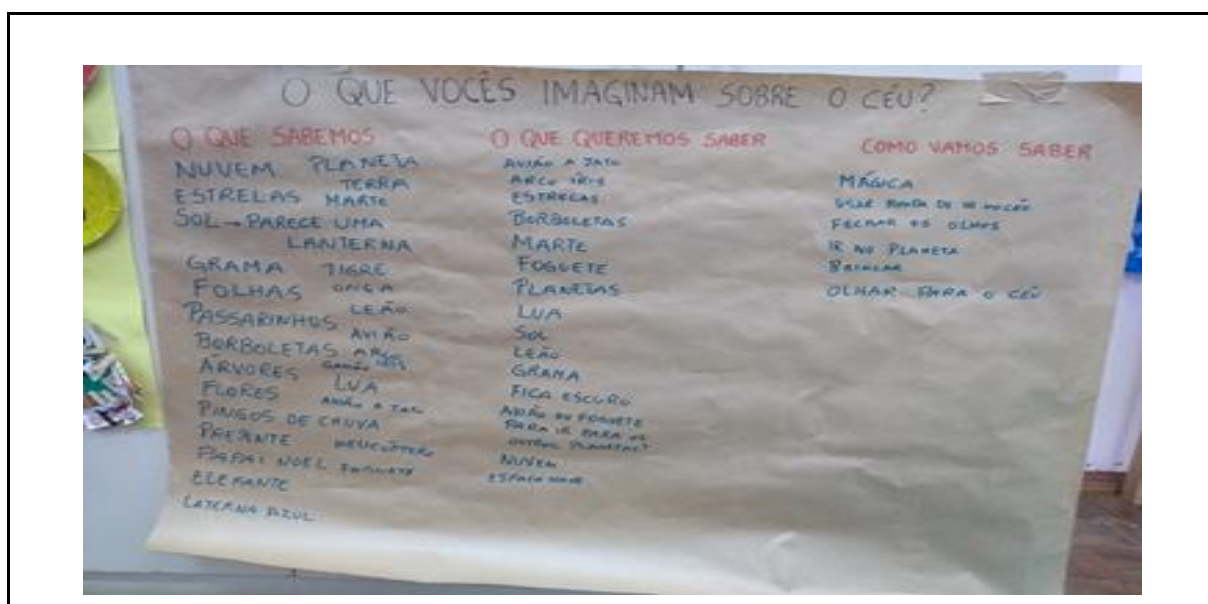 O QUE VOCÊS IMAGINAM SOBRE O CÉU?
O QUE SABEMOS
NUVEM PLANETA
TERRA
ESTRELAS MARTE
SOL → PARECE UMA
LANTERNA
GRAMA TIGRE
FOLHAS ONÇA
LEÃO
PASSARINHOS
AVIÃO
BORBOLETAS ARCO
ÁRVORES
LUA
FLORES AVIÃO A JATO
PINGOS DE CHUVA
PRESENTE HELICÓPTERO
PAPAI NOEL FOGUETE
ELEFANTE
LATERNA AZUL
O QUE QUEREMOS SABER
AVIÃO A JATO
ARCO ÍRIS
ESTRELAS
BORBOLETAS
MARTE
FOGUETE
PLANETAS
LUA
SOL
LEÃO
GRAMA
FICA ESCURO
AVIÃO OU FOGUETE
PARA IR PARA OS
OUTROS PLANETAS?
NUVEM
ESPAÇO NAVE
COMO VAMOS SABER
MÁGICA
FECHAR OS OLHOS
IR NO PLANETA
BRINCAR
OLHAR PARA O CÉU